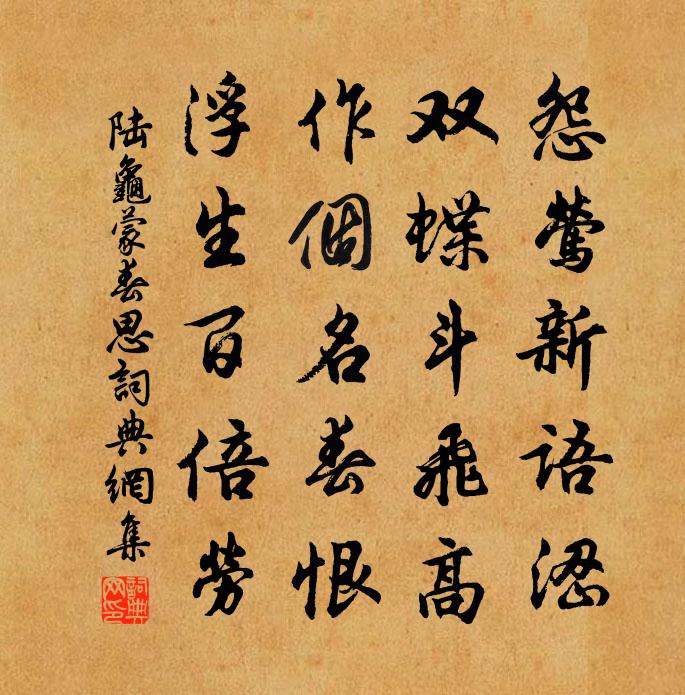 怨莺新语涩
双蝶斗飛高
作個名春恨
浮生百倍勞
陆龜蒙春思詞典網集
詞典网印